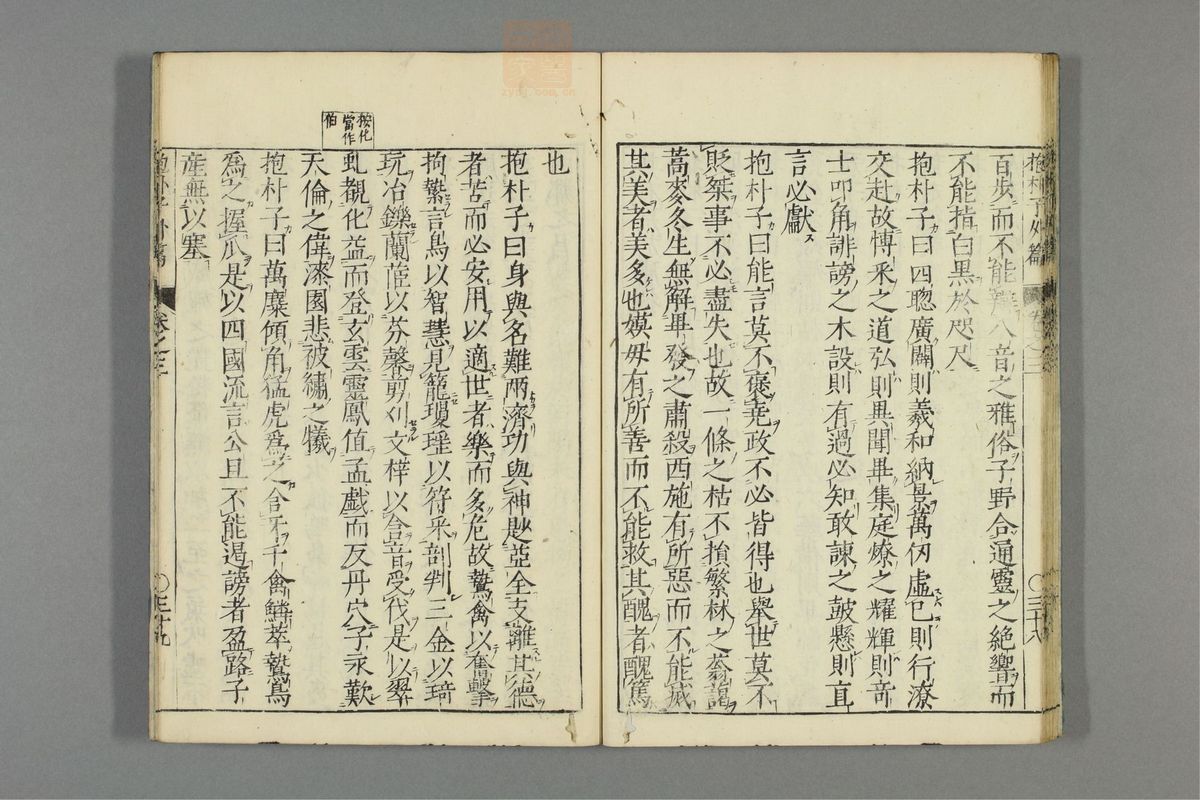 百歩而不能辨八音之雅俗子野合通靈之絶響而
不能指白黒於咫尺
抱朴子曰四聰廣闢則羲和納景萬仭虚己則行潦
交赴故博采之道弘則異聞畢集庭燎之耀輝則竒
士叩角誹謗之木設則有過必知敢諫之皷懸則直
言必獻
抱朴子曰能言莫不褒堯政不必皆得也舉世莫不
貶桀事不必盡失也故一條之枯不損繁林之蓊藹
蒿麥冬生無解畢發之肅殺西施有所惡而不能减
其美者美多也嫫母有所善而不能救其醜者醜篤
也
抱朴子曰身與名難兩濟功與神尠並全支離其德
者苦而必安用以適世者樂而多危故鷙禽以奮擊
拘縶言鳥以智慧見籠瓊瑶以符采剖判三金以琦
玩冶鑠蘭茞以芬馨剪刈文梓以含音受伐是以翠
虬覩化益而登玄雲靈鳳值孟戲而反丹穴子永歎
天倫之偉漆園悲被繡之犧
抱朴子曰萬麋傾角猛虎為之含牙千禽鱗萃鷙鳥
為之握爪是以四國流言公旦不能遏謗者盈路子
産無以塞
按化
當作
伯
抱朴子外篇
卷之三
〇三十八
〇三十九
zyng.com.cn